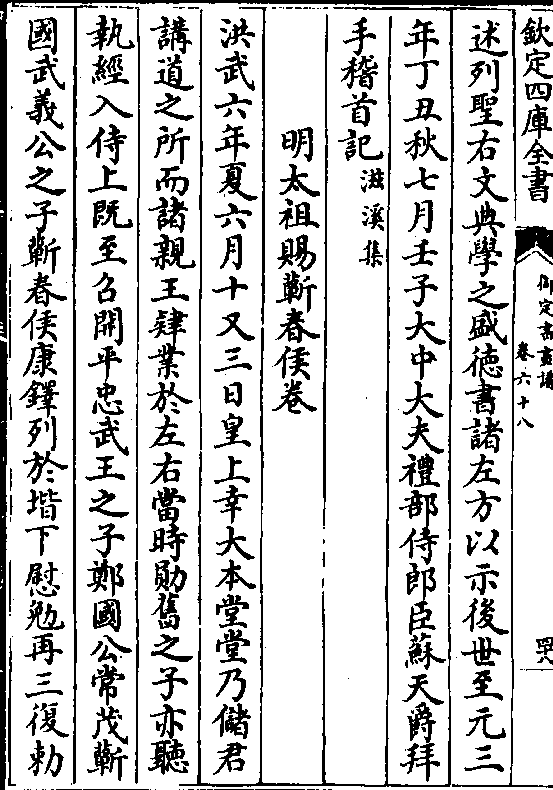 欽定四庫全書
御定書畫譜
卷六十八
述列聖右文典學之盛德書諸左方以示後世至元三
年丁丑秋七月壬子大中大夫禮部侍郎臣蘇天爵拜
手稽首記滋溪集
明太祖賜蘄春侯卷
洪武六年夏六月十又三日皇上幸大本堂堂乃儲君
講道之所而諸親王肄業於左右當時勛舊之子亦聽
執經入侍上既至召開平忠武王之子鄭國公常茂蘄
國武義公之子蘄春侯康鐸列於堦下慰勉再三復勅